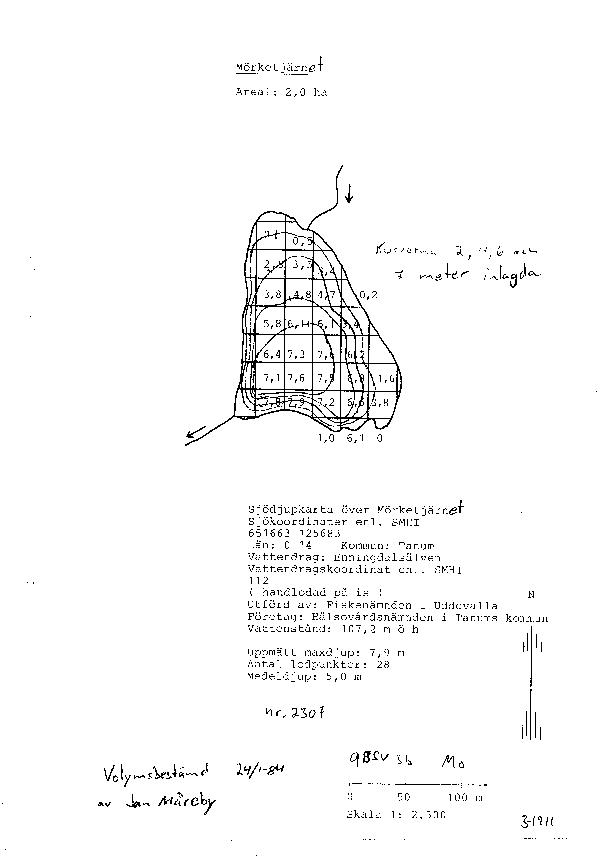 Mörketjärnet
Areal: 2,0 ha
Kurvorna 2,4,6 och
7 meter inlagda
0,5
2,5 3,3
3,8 4,8 4,7 0,2
5,8 6,1 6,1 3,4
6,4 7,3 7,6 6,2
7,1 7,6 7,9 6,8 1,6
7,8 7,9 7,2 6,6 5,8
1,0 6,1 0
Sjödjupkarta över Mörketjärnet
Sjökoordinater enl. SMHI
651663 125683
Län: O 14 Kommun: Tanum
Vattendrag: Enningdalsälven
Vattendragskoordinat enl. SMHI
112
( handlodad på is )
N
Utförd av: Fiskenämnden i Uddevalla
Företag: Hälsovårdsnämnden i Tanums kommun
Vattenstånd: 107,2 m ö h
Uppmätt maxdjup: 7,9 m
Antal lodpunkter: 28
Medeldjup: 5,0 m
nr. 2307
Volymsbestämd 24/1-84
av Jan Måreby
9BSV 3b Mo
0 50 100 m
Skala 1: 2,500
3-1911